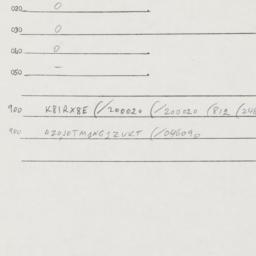 020 0
030 0
040 0
050 –
900 K81RX8E (/200020 (/200020 (812 (248
900 (/046090